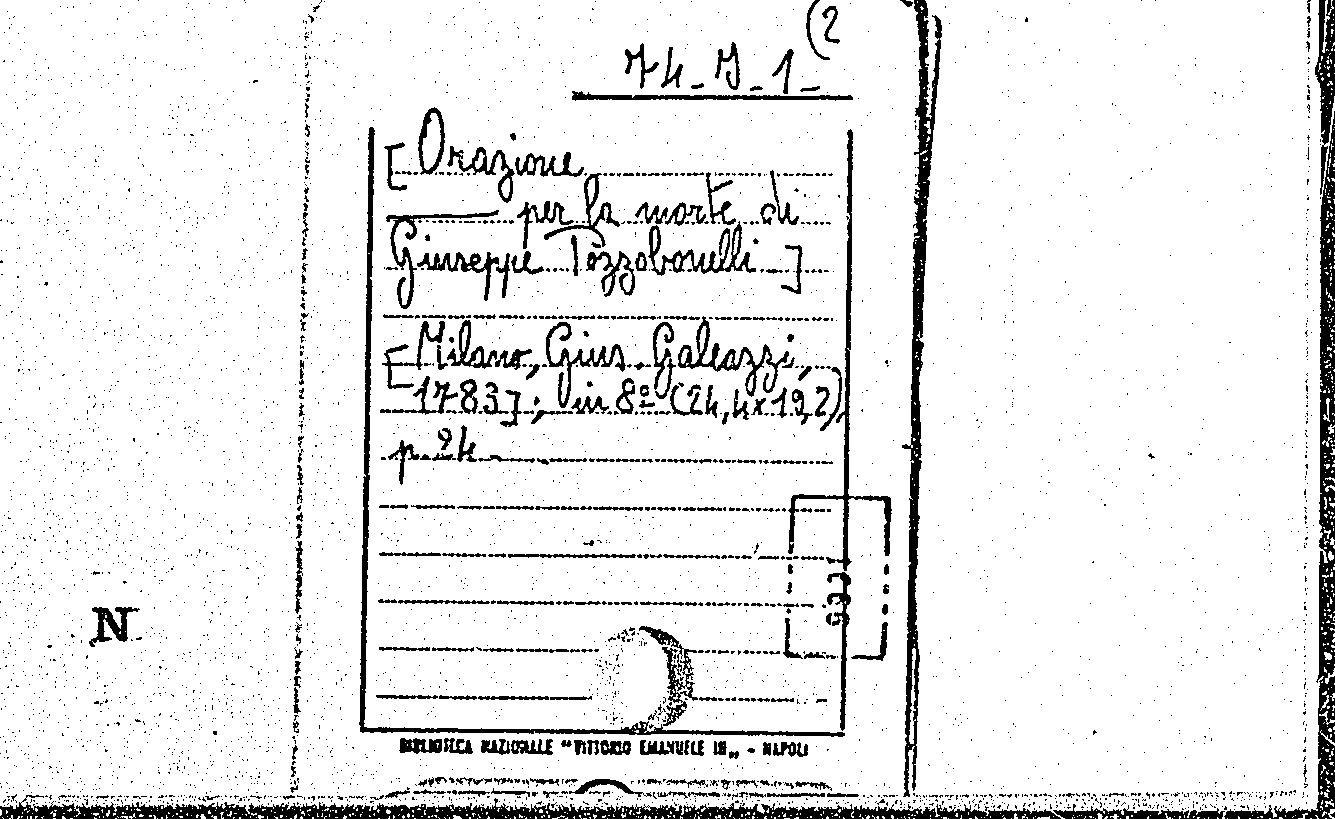 (2
74-J-1-
[Orazione
—— per la morte di
Giuseppe Pozzobonelli]
[Milano, Gius. Galeazzi,
1783]; in 8º (24,4x19,2),
p. 24.
N
BIBLIOTECA NAZIONALE "VITTORIO EMANUELE III„ - NAPOLI